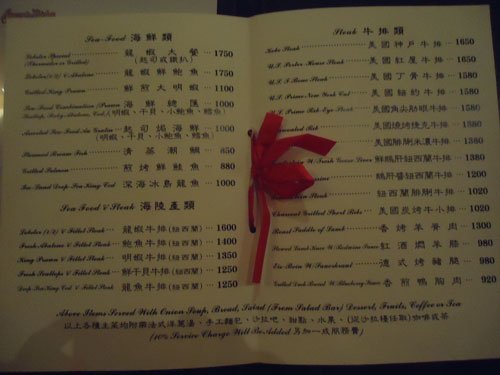 Sea-Food 海鮮類
Lobster Special 龍蝦大餐 1750
(Thermidor or Grilled) (起司或鐵扒)
Lobster (1/2) & Abalone 龍蝦鮮鮑魚 1750
Grilled King Prawn 鮮煎大明蝦 1100
Sea-Food Combination (Prawn 海鮮總匯 1000
(明蝦、干貝、小鮑魚、鱈魚)
Assorted Sea-Food Au Gratin 起司焗海鮮 1000
(明蝦、干貝、小鮑魚、鱈魚)
Steamed Bream Fish 清蒸潮鯛 850
Grilled Salmon 煎烤鮮鮭魚 880
Ice-Land Deep Sea King Cod 深海冰島龍魚 1000
Sea Food & Steak 海陸產類
Lobster (1/2) & Fillet Steak 龍蝦牛排(紐西蘭) 1600
Fresh Abalone & Fillet Steak 鮑魚牛排(紐西蘭) 1400
King Prawn & Fillet Steak 明蝦牛排(紐西蘭) 1350
Fresh Scallops & Fillet Steak 鮮干貝牛排(紐西蘭) 1250
Deep Sea King Cod & Fillet Steak 龍魚牛排(紐西蘭) 1250
Steak 牛排類
Kobe Steak 美國神戶牛排 1650
U.S. Porter House Steak 美國紅屋牛排 1650
U.S. T-Bone Steak 美國丁骨牛排 1580
U.S. Prime New York Cut 美國紐約牛排 1580
U.S. Prime Rib-Eye Steak 美國肉眼牛排 1580
Rib 美國燒烤捷克牛排 1380
美國腓脷米濃牛排 1380
W. Fresh Goose Liver 鮮鵝肝紐西蘭牛排 1380
鵝肝醬紐西蘭牛排 1250
Steak 紐西蘭腓脷牛排 1020
Charcoal Grilled Short Ribs 美國炭烤牛小排 1020
Roast Saddle of Lamb 香烤羊脊肉 1300
Stewed Lamb Knee W. Redwine Sauce 紅酒燜羊膝 980
Eis-Bein W. Sauerkraut 德式烤豬腳 980
Grilled Duck Breast W. Blueberry Sauce 香煎鴨胸肉 920
Above Items Served With Onion Soup, Bread, Salad (From Salad Bar) Dessert, Fruits, Coffee or Tea
以上各種主菜均附帶法式洋蔥湯、手工麵包、沙拉吧、甜點、水果、(從沙拉檯任取)咖啡或茶
(10% Service Charge Will Be Added 另加一成服務費)